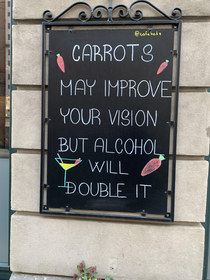 @cafekubo
CARROTS
MAY IMPROVE
YOUR VISION
BUT ALCOHOL
WILL
DOUBLE IT